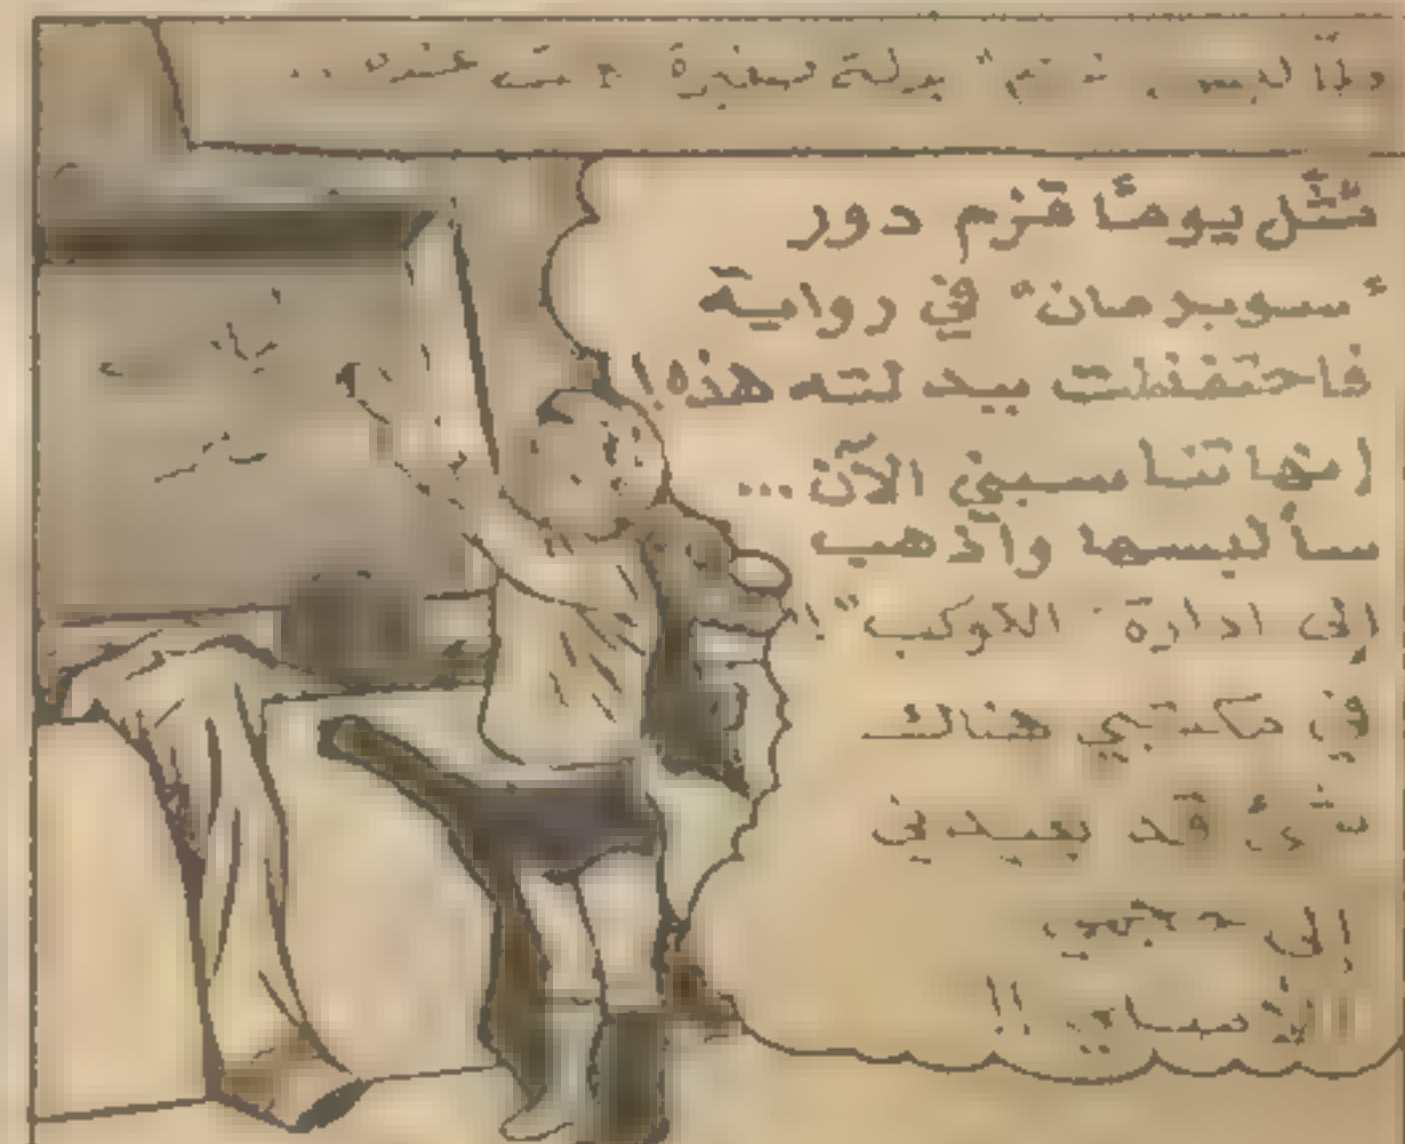 بدلة صغيرة
مثّل يومًا قزم دور
"سوبرمان" في رواية
فاحتفظت ببدلته هذه!
إنها تناسبني الآن...
سألبسها وأذهب
إلى ادارة "الكوكب"!
في مكتبي هناك
شيء قد يعيدني
إلى حجمي
الأساسي!!